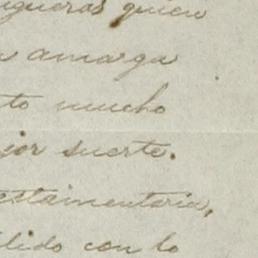 igueras quien
a amarga
to mucho
jor suerte.
estamentaria,
lido con lo